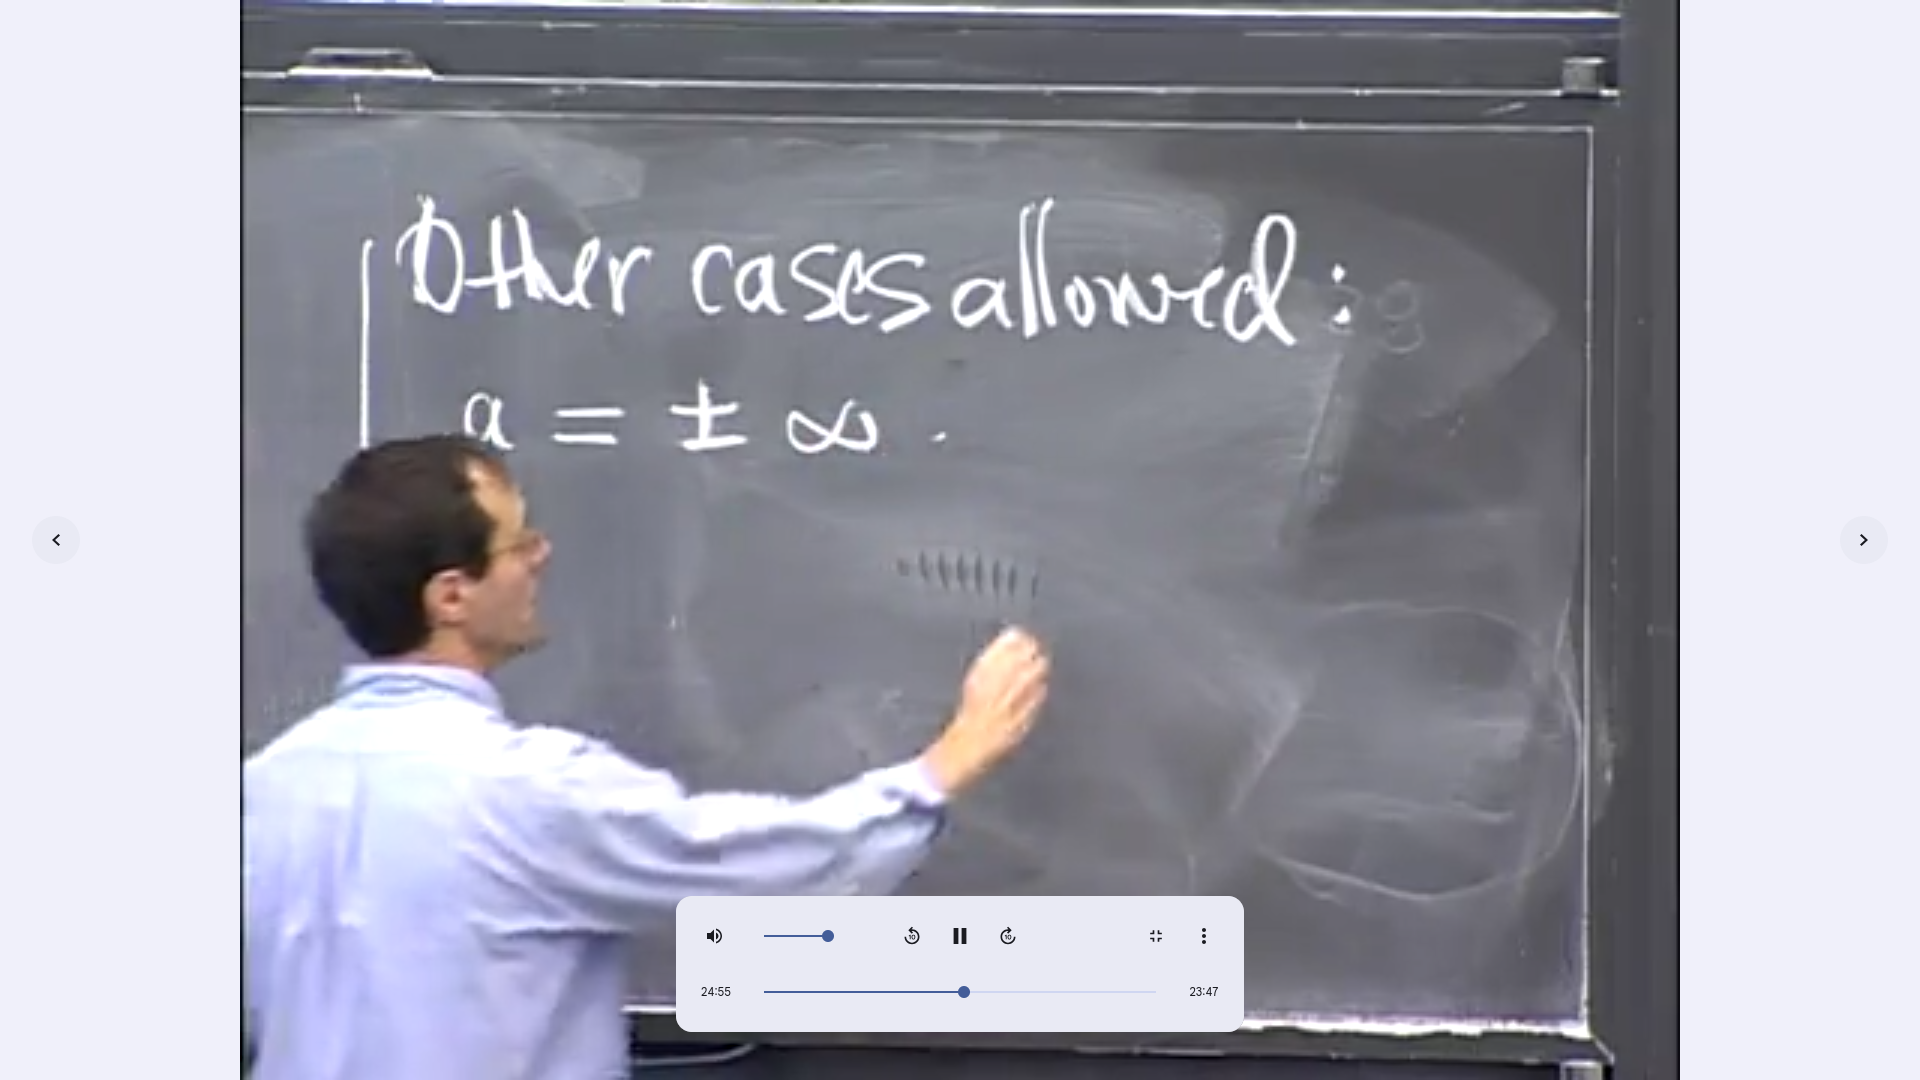 Other cases allowed:
a = ± ∞ .
10
10
24:55
23:47